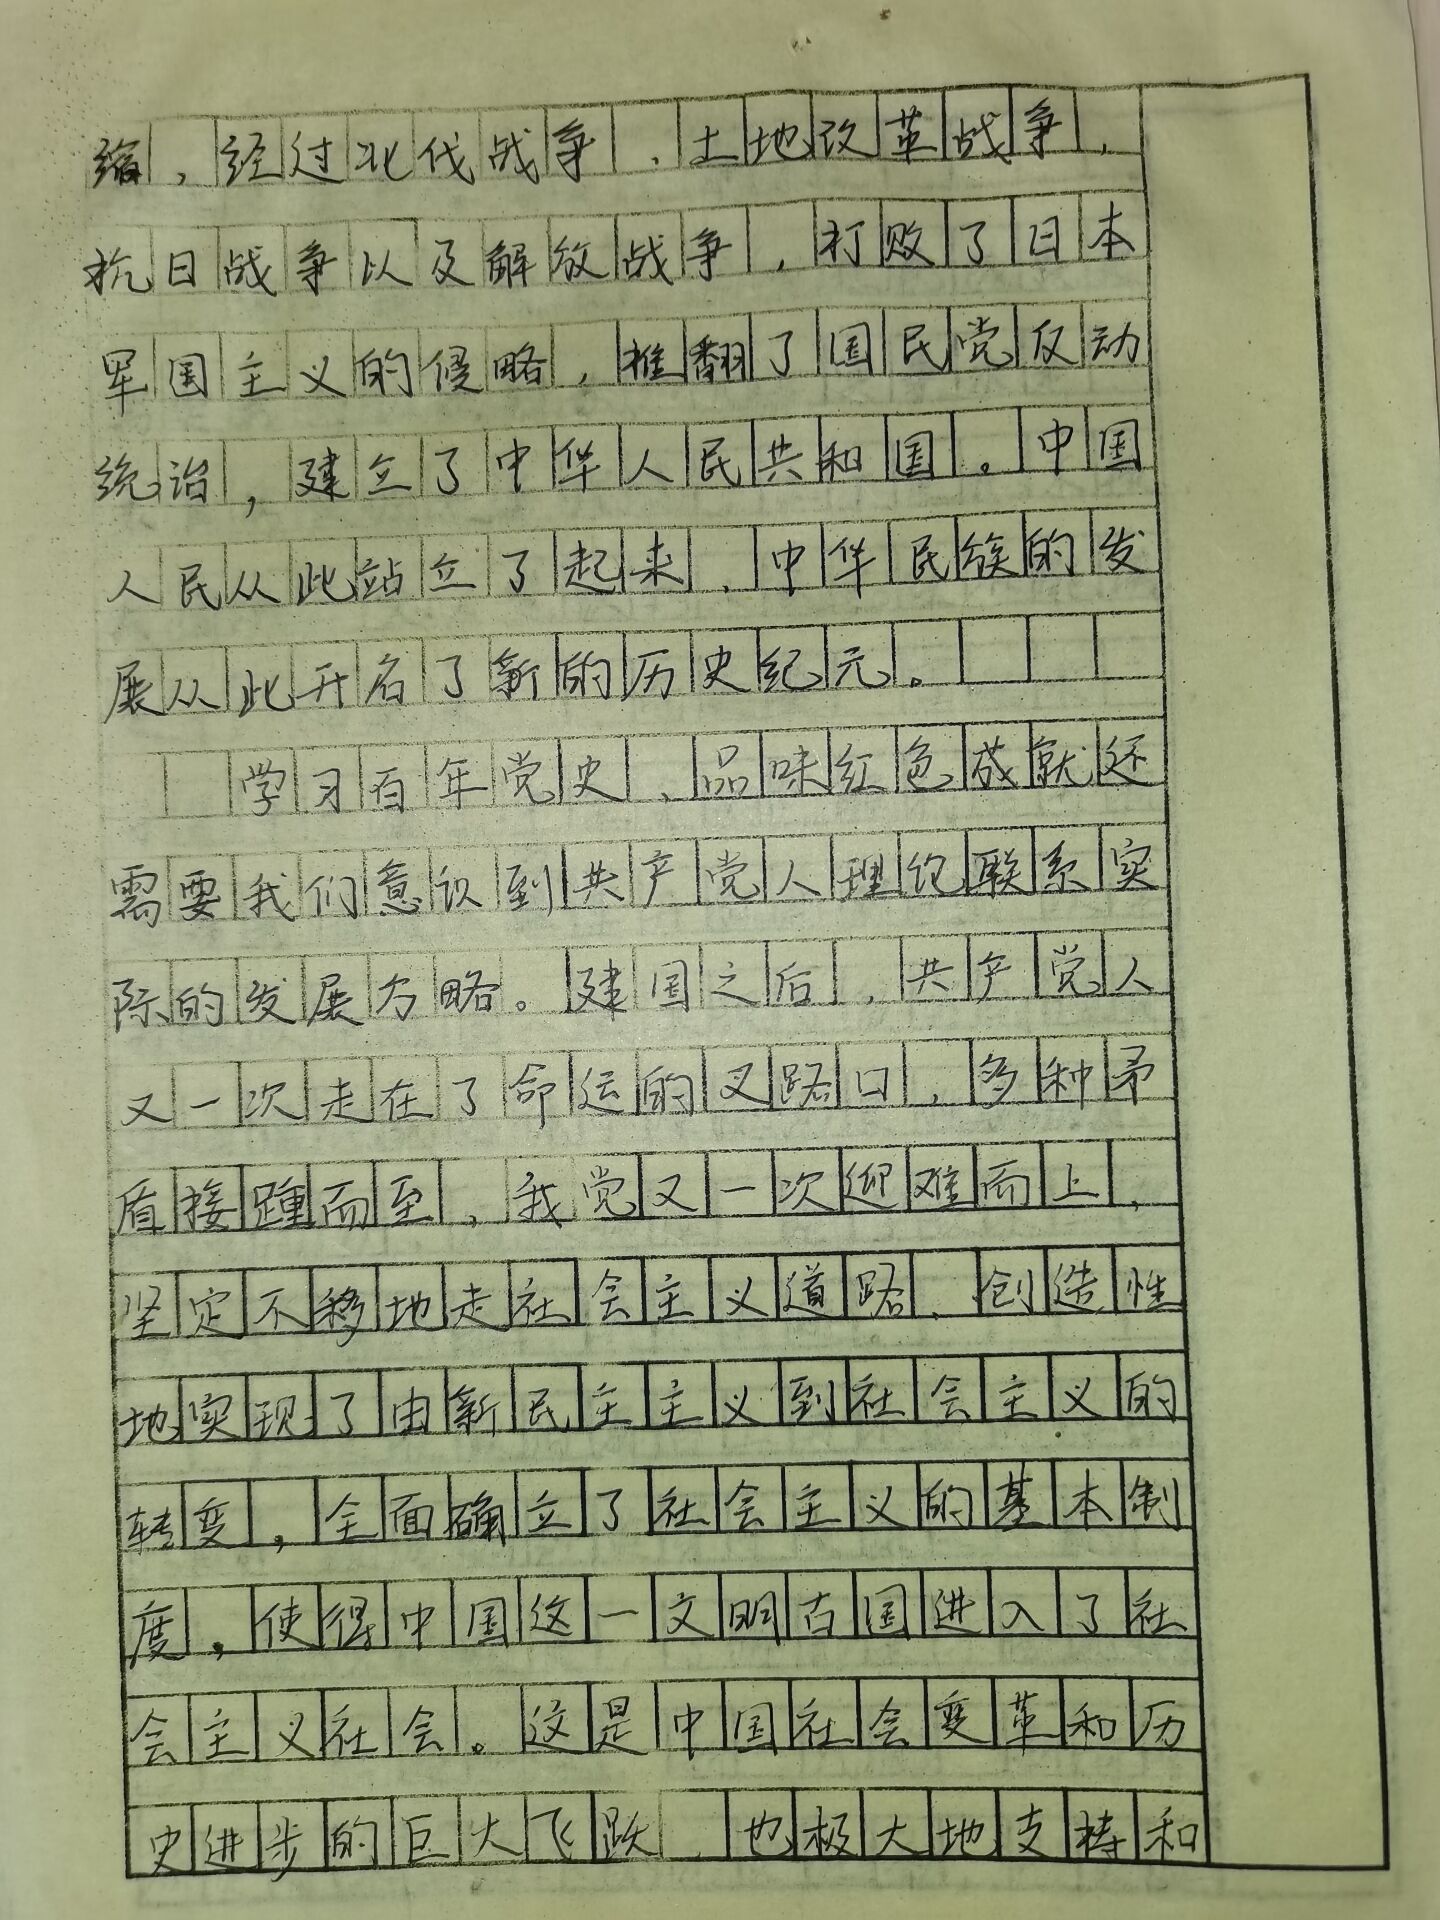 缩，经过北伐战争、土地改革战争、
抗日战争以及解放战争，打败了日本
军国主义的侵略，推翻了国民党反动
统治，建立了中华人民共和国。中国
人民从此站立了起来，中华民族的发
展从此开启了新的历史纪元。
学习百年党史、品味红色成就还
需要我们意识到共产党人理论联系实
际的发展方略。建国之后，共产党人
又一次走在了命运的叉路口，多种矛
盾接踵而至，我党又一次迎难而上，
坚定不移地走社会主义道路，创造性
地实现了由新民主主义到社会主义的
转变，全面确立了社会主义的基本制
度，使得中国这一文明古国进入了社
会主义社会。这是中国社会变革和历
史进步的巨大飞跃，也极大地支持和